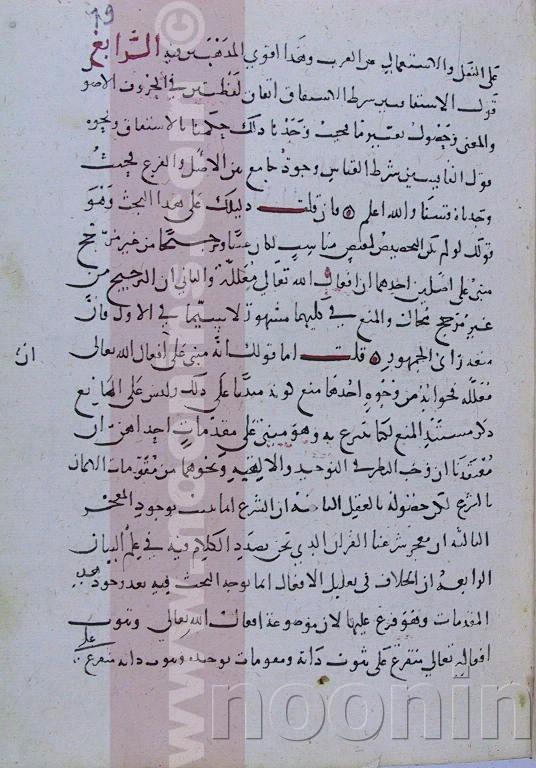 19
على النقل والاستعمال عن العرب وهذا اقوى المذهبين فيه الرابع
قول الاشتقاقيين شرط الاشتقاق اتفاق لفظتين في الحروف الاصو
والمعنى وحصول تغيير ما بحيث وجدنا ذلك حكمنا بالاشتقاق ونحوه
قول القايسيين شرط القياس وجود جامع بين الاصل والفرع بحيث
وجدناه قسنا والله اعلم فان قلت دليلك على هذا البحث وهو
قولك لو لم يكن التخصيص لمعنى مناسب لكان عبثا وترجيحا من غير مرجح
مبنى على اصلين احدهما ان افعال الله تعالى معللة والثاني ان الترجيح من
غير مرجح محال والمنع في كليهما مشهور لا سيما في الاول فان
منعه راى الجمهور قلت اما قولك انه مبنى على افعال الله تعالى
ان
معلله فجوابه من وجوه احدها منع كونه مبنيا على ذلك وليس على المانع
ذكر مستند المنع لكنا نتبرع به وهو مبنى على مقدمات احداهن ان
معتقدنا ان وجب النظر في التوحيد والالهيه ونحوها من مقومات الايمان
بالشرع لكن حصوله بالعقل الثانيه ان الشرع انما يثبت بوجود المعجز
الثالثه ان معجز شرعنا القران الذي نحن بصدد الكلام فيه في علم البيان
الرابعه ان الخلاف في تعليل الافعال انما يوجه البحث فيه بعد وجود هذه
المقدمات وهو فرع عليها لان موضوعه افعال الله تعالى وثبوت
افعاله تعالى متفرع على ثبوت ذاته ومقومات توحيده وثبوت ذاته متفرع على
www.noormags.com ©
noonin